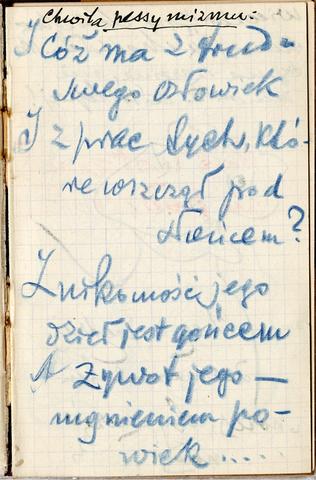 Chwila pessymizmu.
I Cóż ma z trud-
nego człowiek
I z prac tych, któ-
re wszczął pod
słońcem?
Znikomości jego
dzieł jest gońcem
A Żywot jego —
mgnieniem po-
wiek....